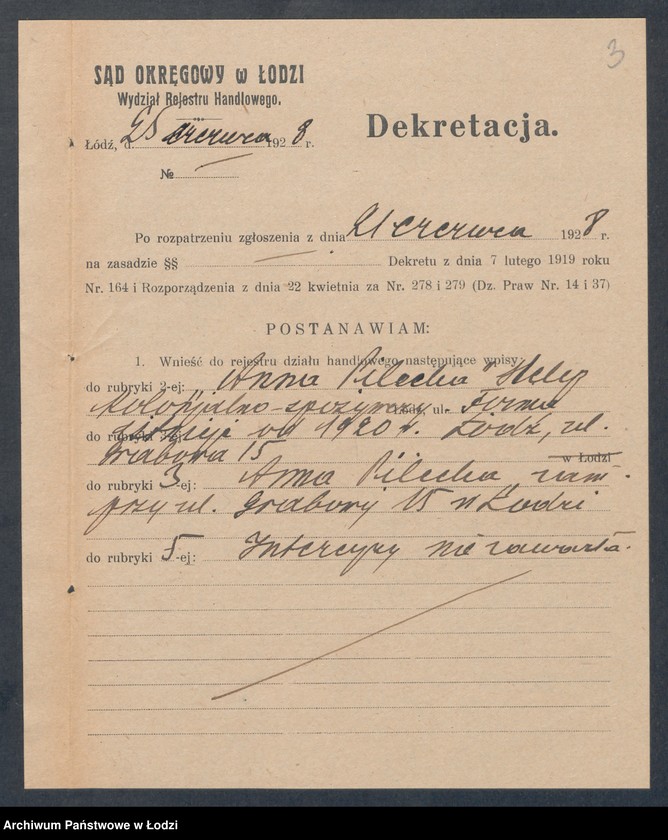 3
SĄD OKRĘGOWY w ŁODZI
Wydział Rejestru Handlowego.
Łódź, d. 25 czerwca 1928 r.
Dekretacja.
№
Po rozpatrzeniu zgłoszenia z dnia 21 czerwca 1928 r.
na zasadzie §§ Dekretu z dnia 7 lutego 1919 roku
Nr. 164 i Rozporządzenia z dnia 22 kwietnia za Nr. 278 i 279 (Dz. Praw Nr. 14 i 37)
POSTANAWIAM:
1. Wnieść do rejestru działu handlowego następujące wpisy:
do rubryki 2-ej: "Anna Pilecka" Sklep
kolonjalno-spożywczy ul. Firma
do rubryki istnieje od 1920 r. Łódź, ul.
Grabowa 15 w Łodzi
do rubryki 3-ej: Anna Pilecka, zam.
przy ul. Grabowej 15 w Łodzi
do rubryki 5-ej: Intercyzy nie zawarła.
Archiwum Państwowe w Łodzi